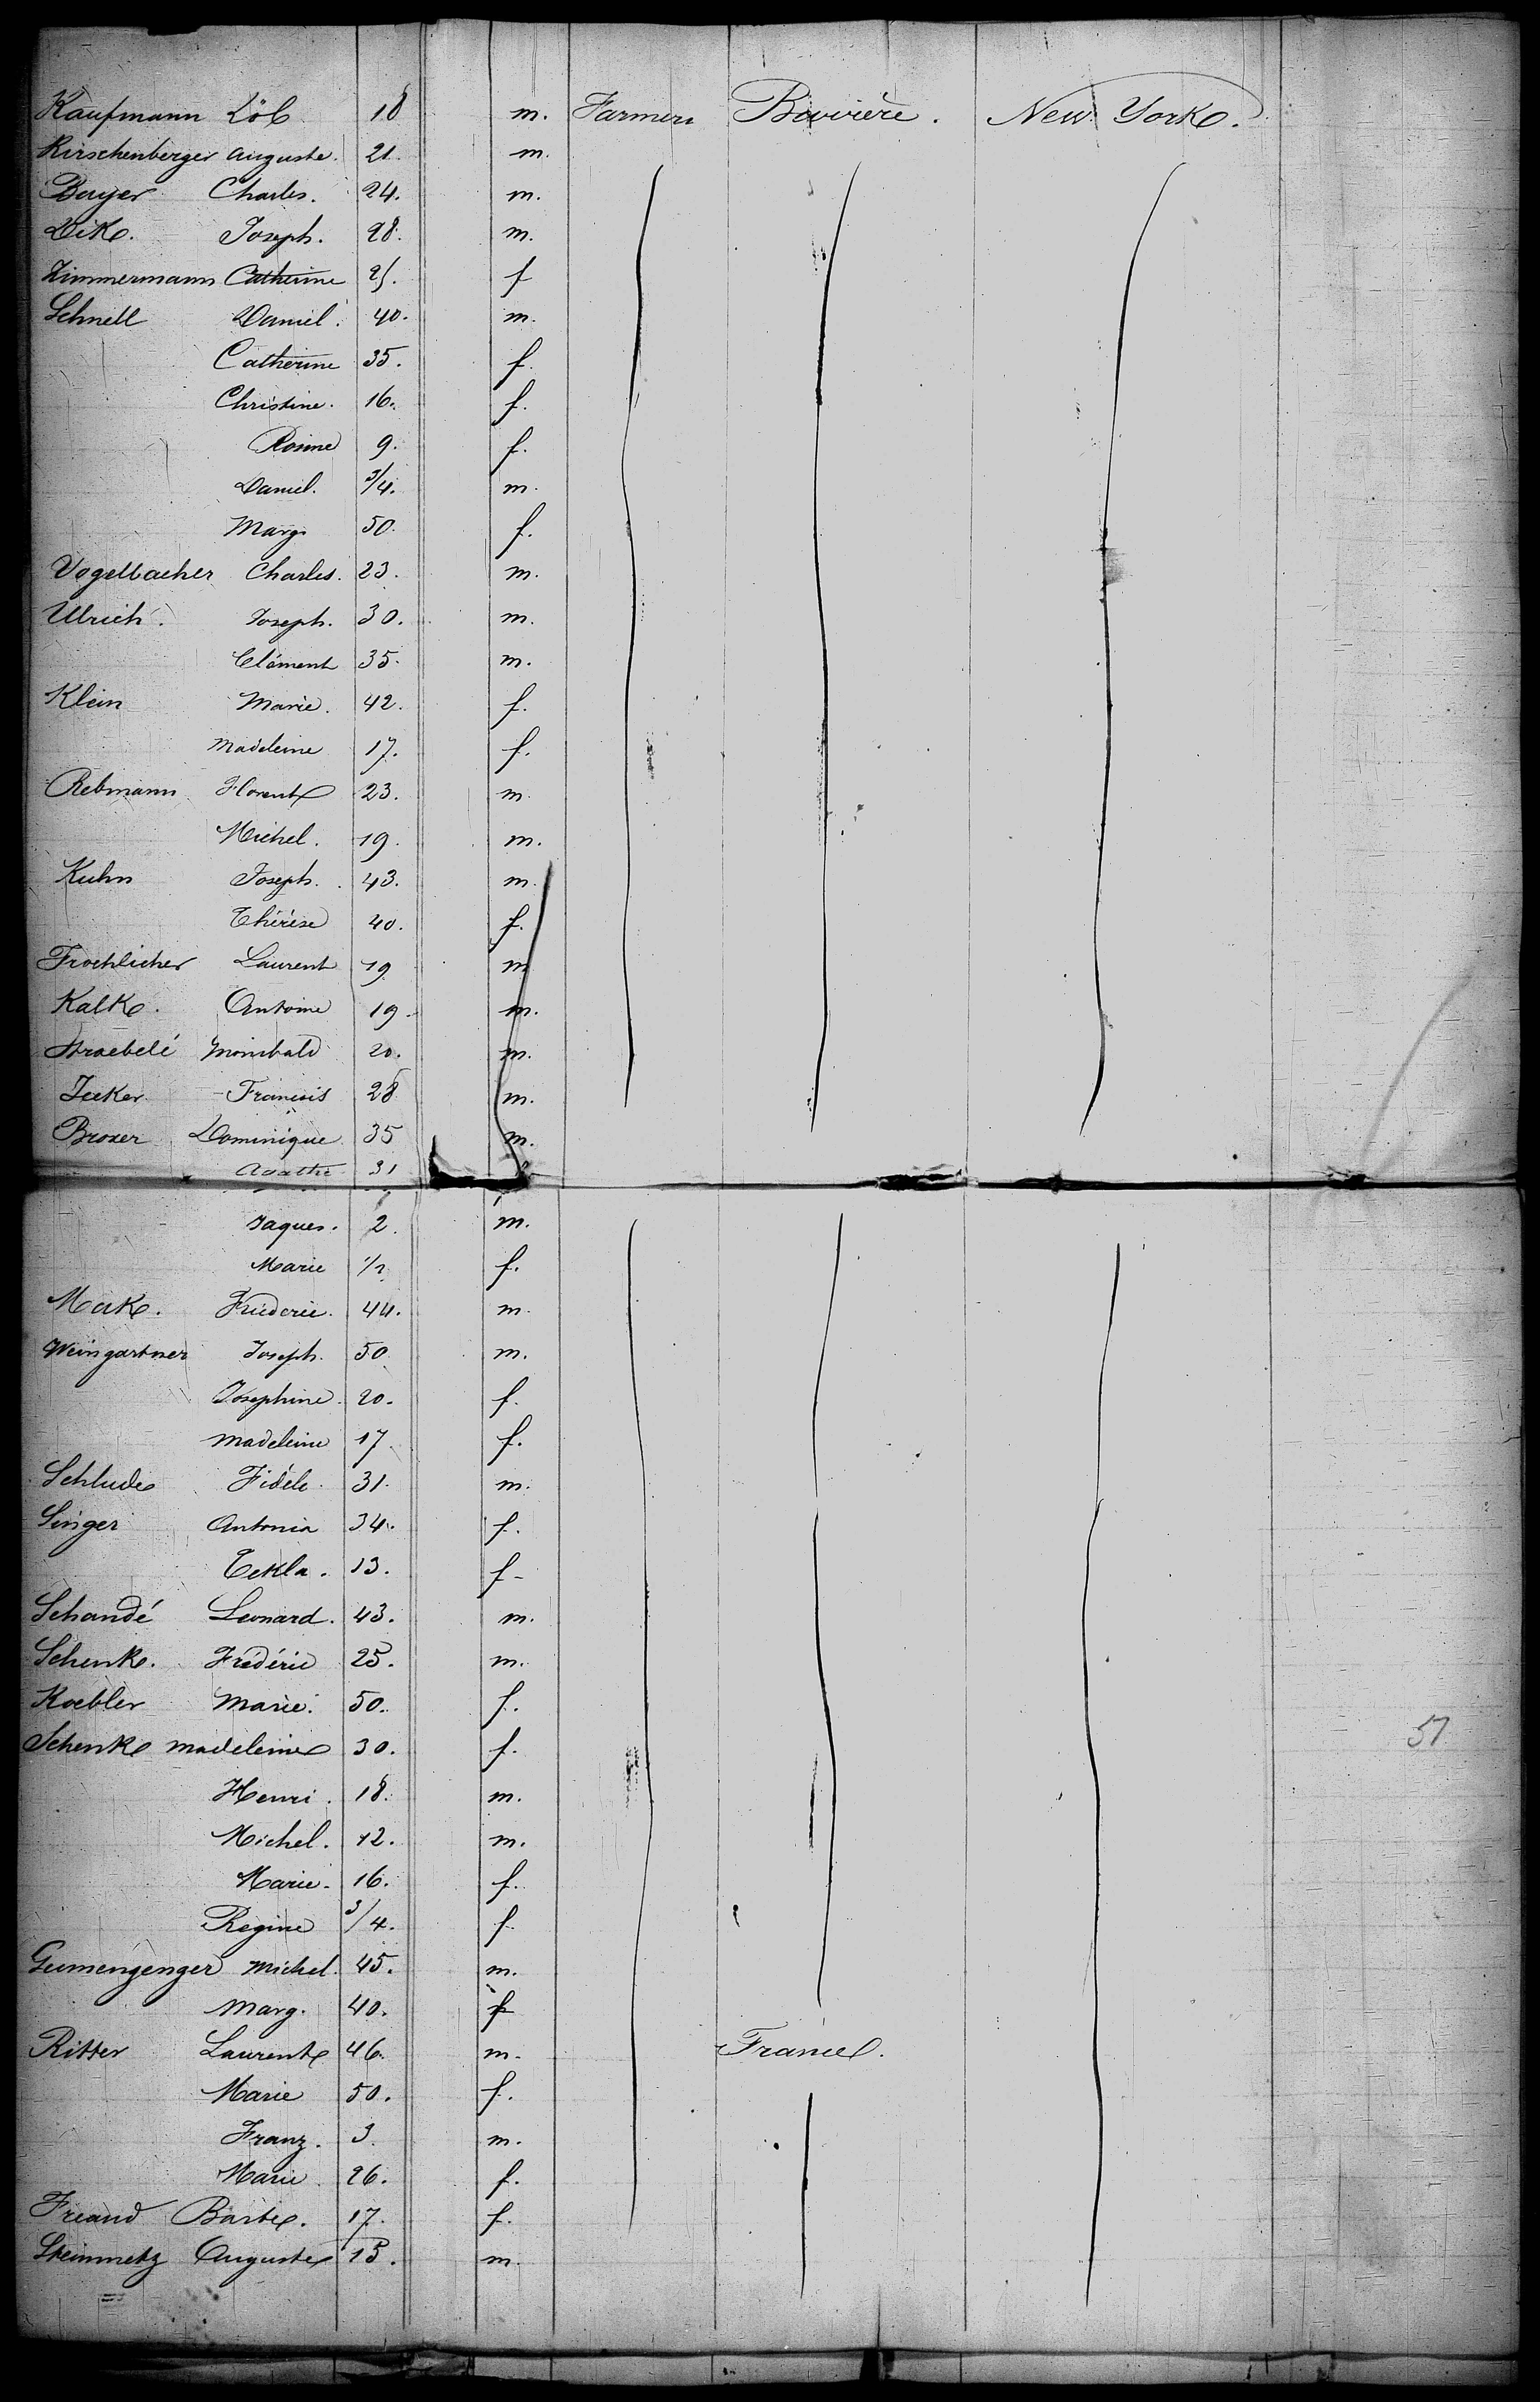 Kaufmann Löb 18 m. Farmer Bavière. New York.
Kirschenberger Auguste. 21. m.
Boyer Charles. 24. m.
Dik. Joseph. 28. m.
Zimmermann Catherine 25. f
Schnell Daniel. 40. m.
Catherine 35. f.
Christine. 16. f.
Rosine 9. f.
Daniel. 3/4. m.
Marg. 50. f.
Vogelbacher Charles. 23. m.
Ulrich. Joseph. 30. m.
Clément 35. m.
Klein Marie. 42. f.
Madeleine 17. f.
Rebmann Florent 23. m.
Michel. 19. m.
Kuhn Joseph. 43. m.
Thérèse 40. f.
Froehlicher Laurent 19 m
Kalk. Antoine 19. m.
Straebelé 20. m.
Jecker Francois 28 m.
Broser Dominique 35 m.
Agathe 31
Jaques. 2. m.
Marie 1/2 f.
Mok. Fréderic. 44. m.
Weingartner Joseph. 50 m.
Josephine. 20. f.
Madeleine 17 f.
Schlude Fidèle. 31. m.
Singer Antonia 34. f.
Tekla. 13. f-
Schandé Leonard. 43. m.
Schenk. Frédéric 25. m.
Koebler Marie. 50. f.
Schenk Madeleine 30. f.
Henri. 18. m.
Michel. 12. m.
Marie. 16. f.
Regine 3/4. f.
Gumengenger Michel. 45. m.
Marg. 40. f
Ritter Laurent 46. m. France.
Marie 50. f.
Franz. 3. m.
Marie. 26. f.
Freand Barbe. 17. f.
Steinmetz Auguste 15. m.
51